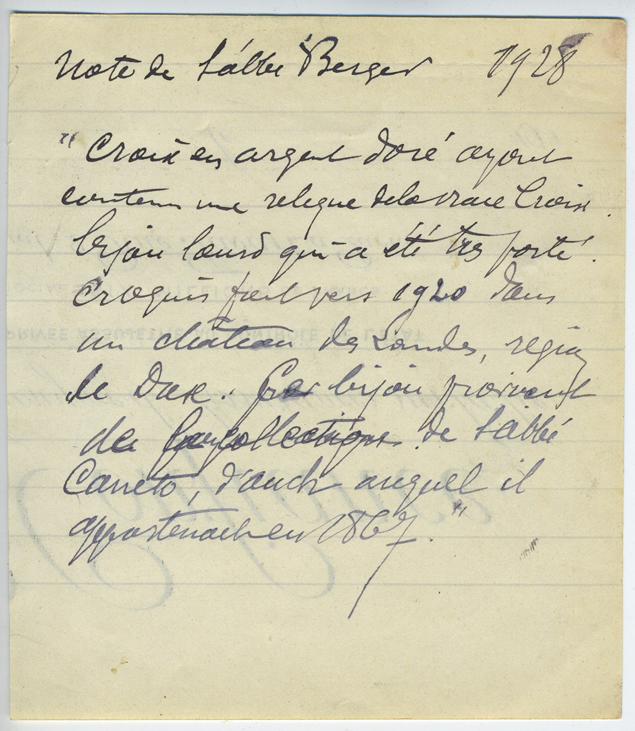 Note de l'abbé Berger 1928
" Croix en argent doré ayant
contenu une relique de la vraie Croix.
bijou lourd qui a été très porté.
Croquis fait vers 1920 dans
un château des Landes, région
de Dax. Ce bijou provient
des collections de l'abbé
Canéto, d'Auch auquel il
appartenait en 1867. "